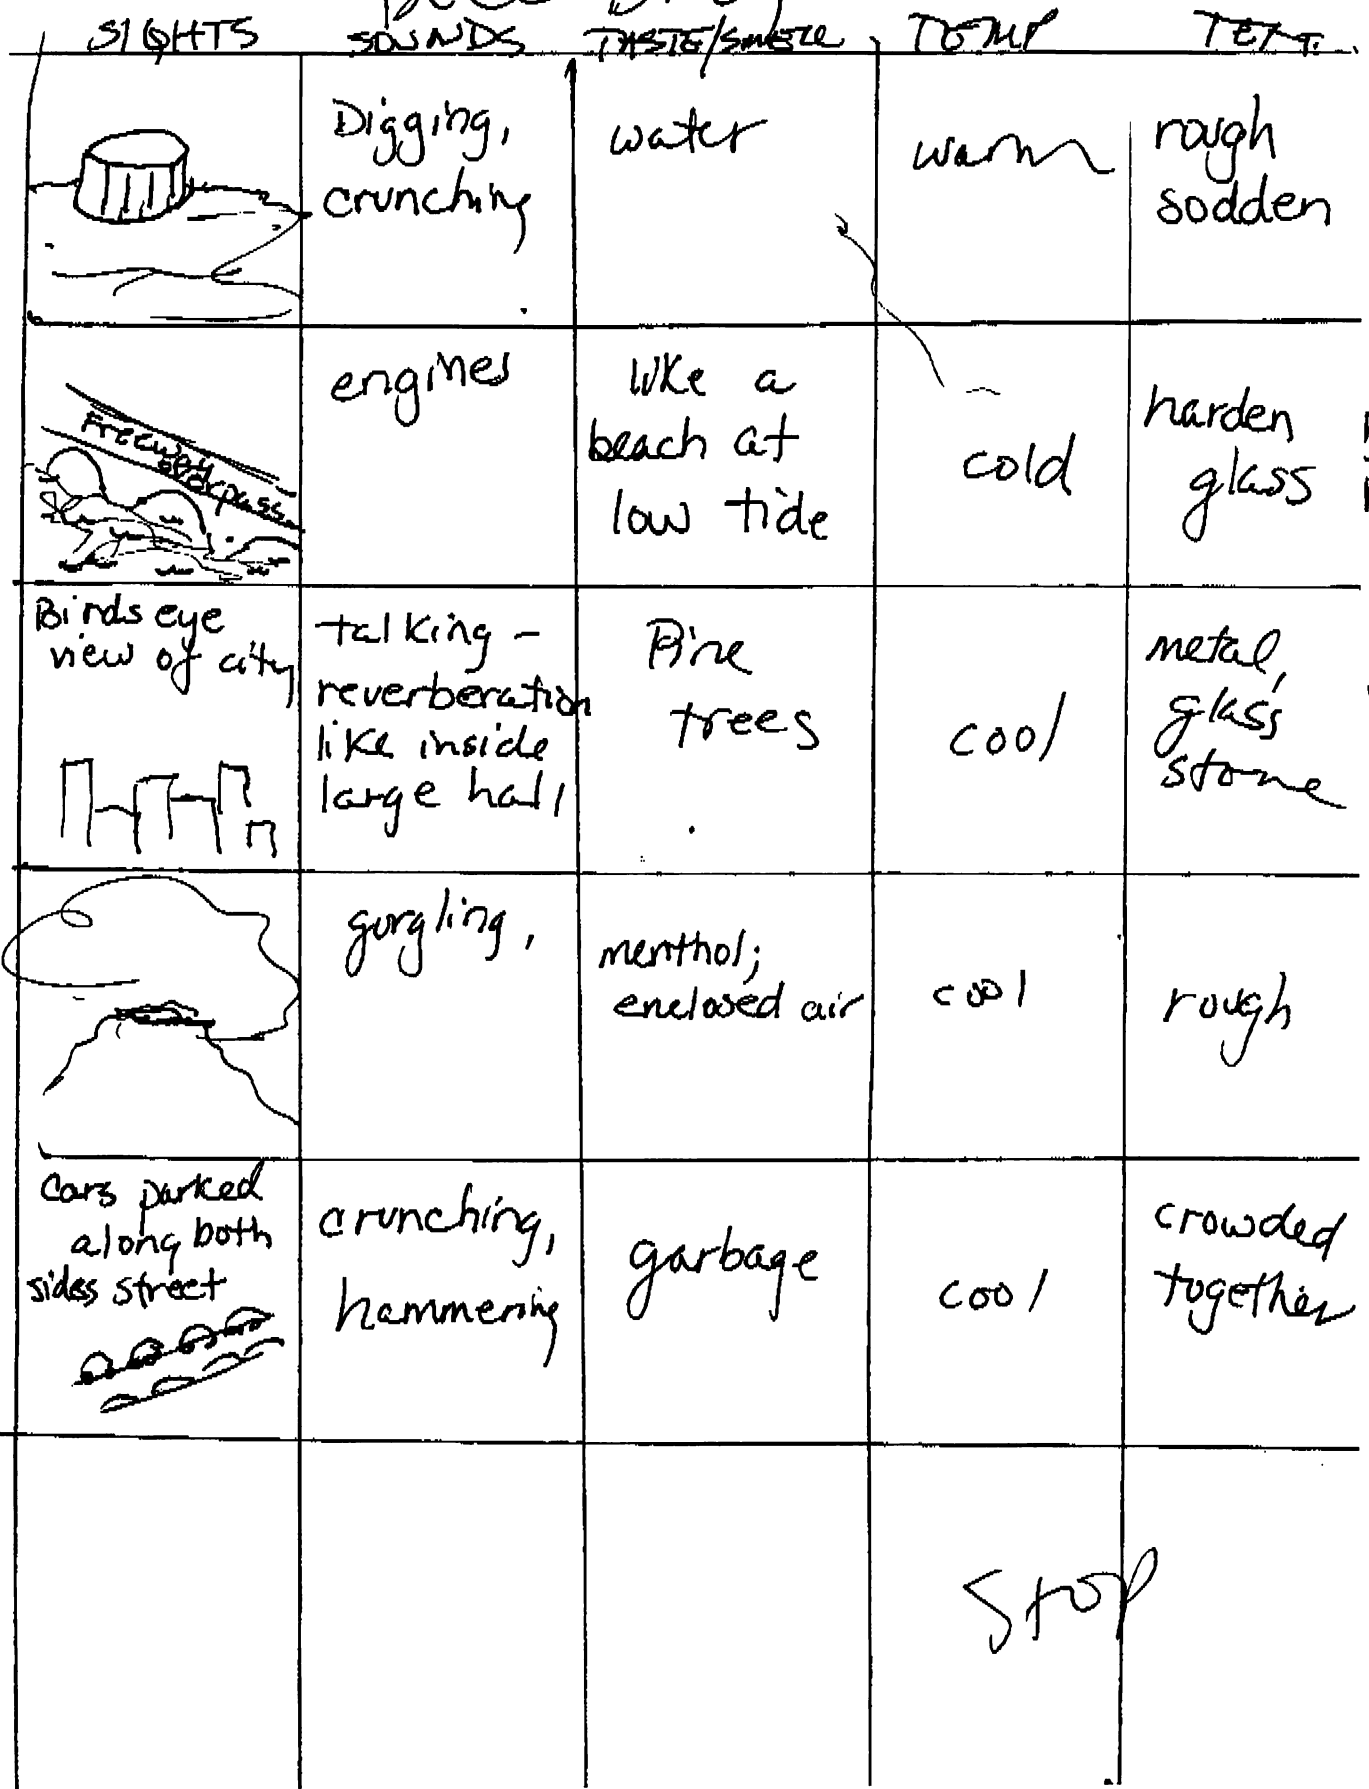 SIGHTS SOUNDS TASTE/SMELL TEMP TEXT.
Digging,
crunching
water
warm
rough
sodden
Freeway
overpass
engines
like a
beach at
low tide
cold
harden
glass
Birds eye
view of city
talking -
reverberation
like inside
large hall
Pine
trees
cool
metal,
glass
stone
gurgling,
menthol;
enclosed air
cool
rough
Cars parked
along both
sides street
crunching,
hammering
garbage
cool
crowded
together
Stop